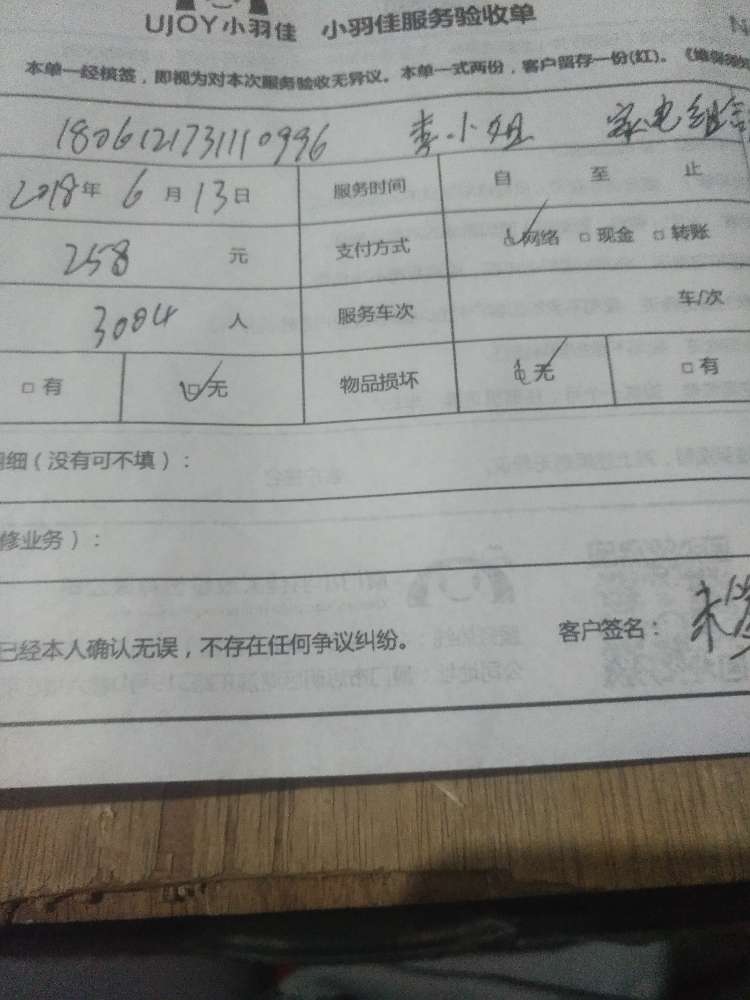 UJOY小羽佳 小羽佳服务验收单
本单一经核签，即视为对本次服务验收无异议。本单一式两份，客户留存一份(红)。
1806121731110996 李小姐 家电组
2018年 6月13日 服务时间 自 至 止
258 元 支付方式 网络 □现金 □转账
3004 人 服务车次 车/次
□有 □无 物品损坏 无 □有
细（没有可不填）：
修业务）：
已经本人确认无误，不存在任何争议纠纷。 客户签名：